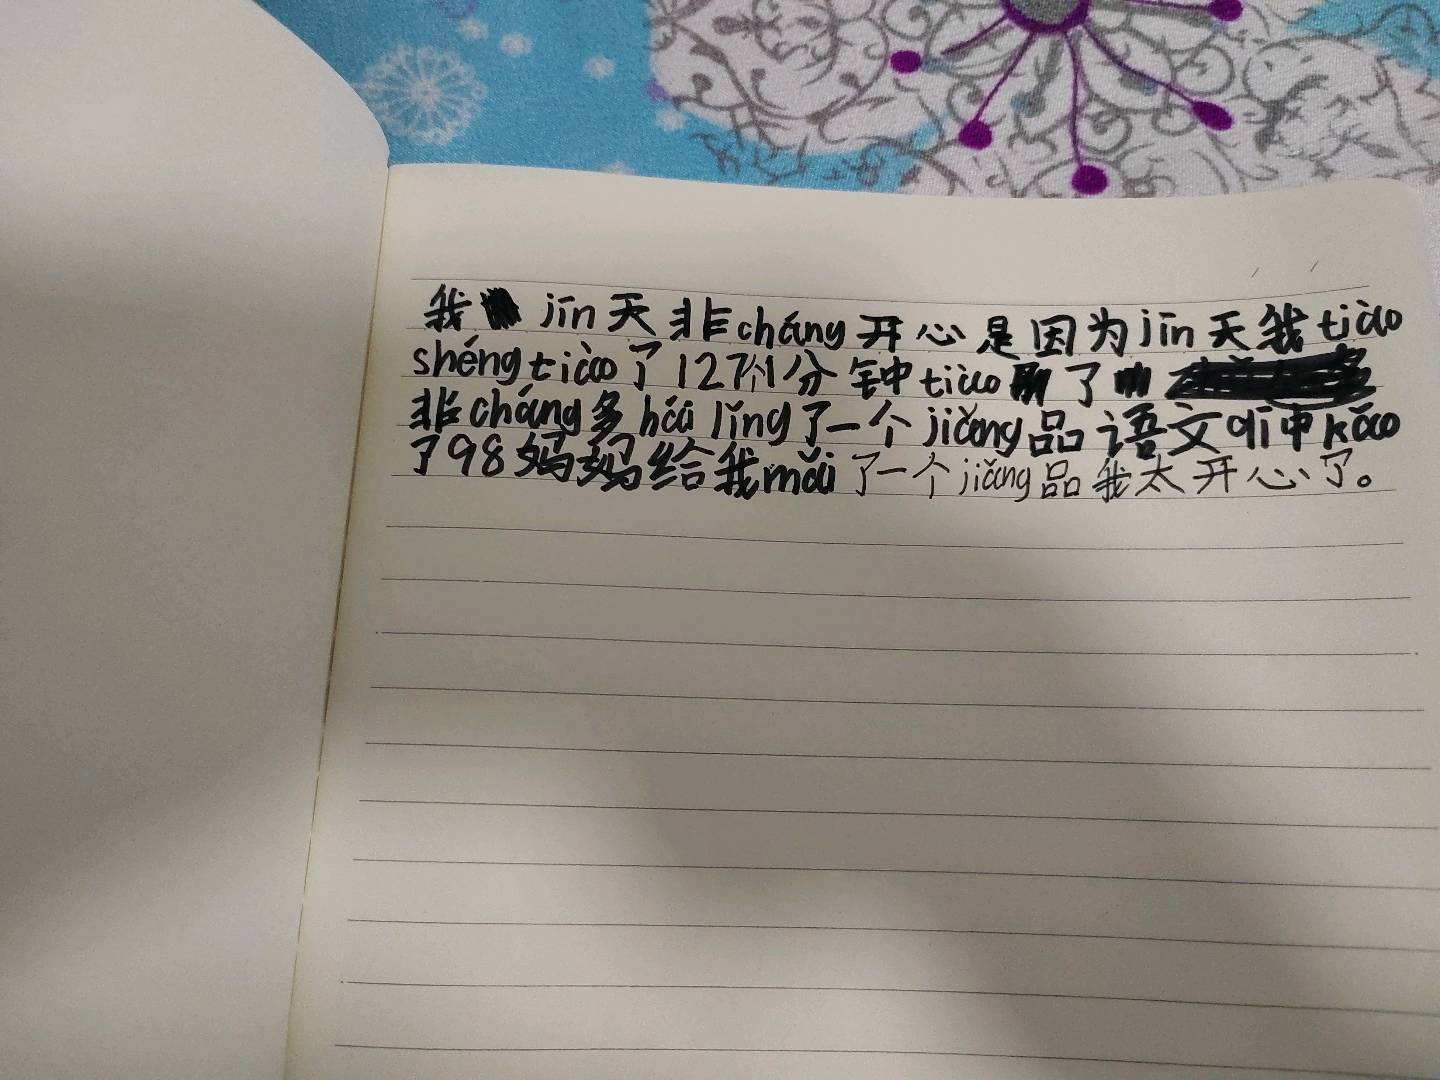 我 jīn天非cháng开心是因为jīn天我tiào
shéng tiào了127个1分钟tiào了
非cháng多hái lǐng了一个jiǎng品语文qī中kǎo
了98妈妈给我mǎi了一个jiǎng品我太开心了。